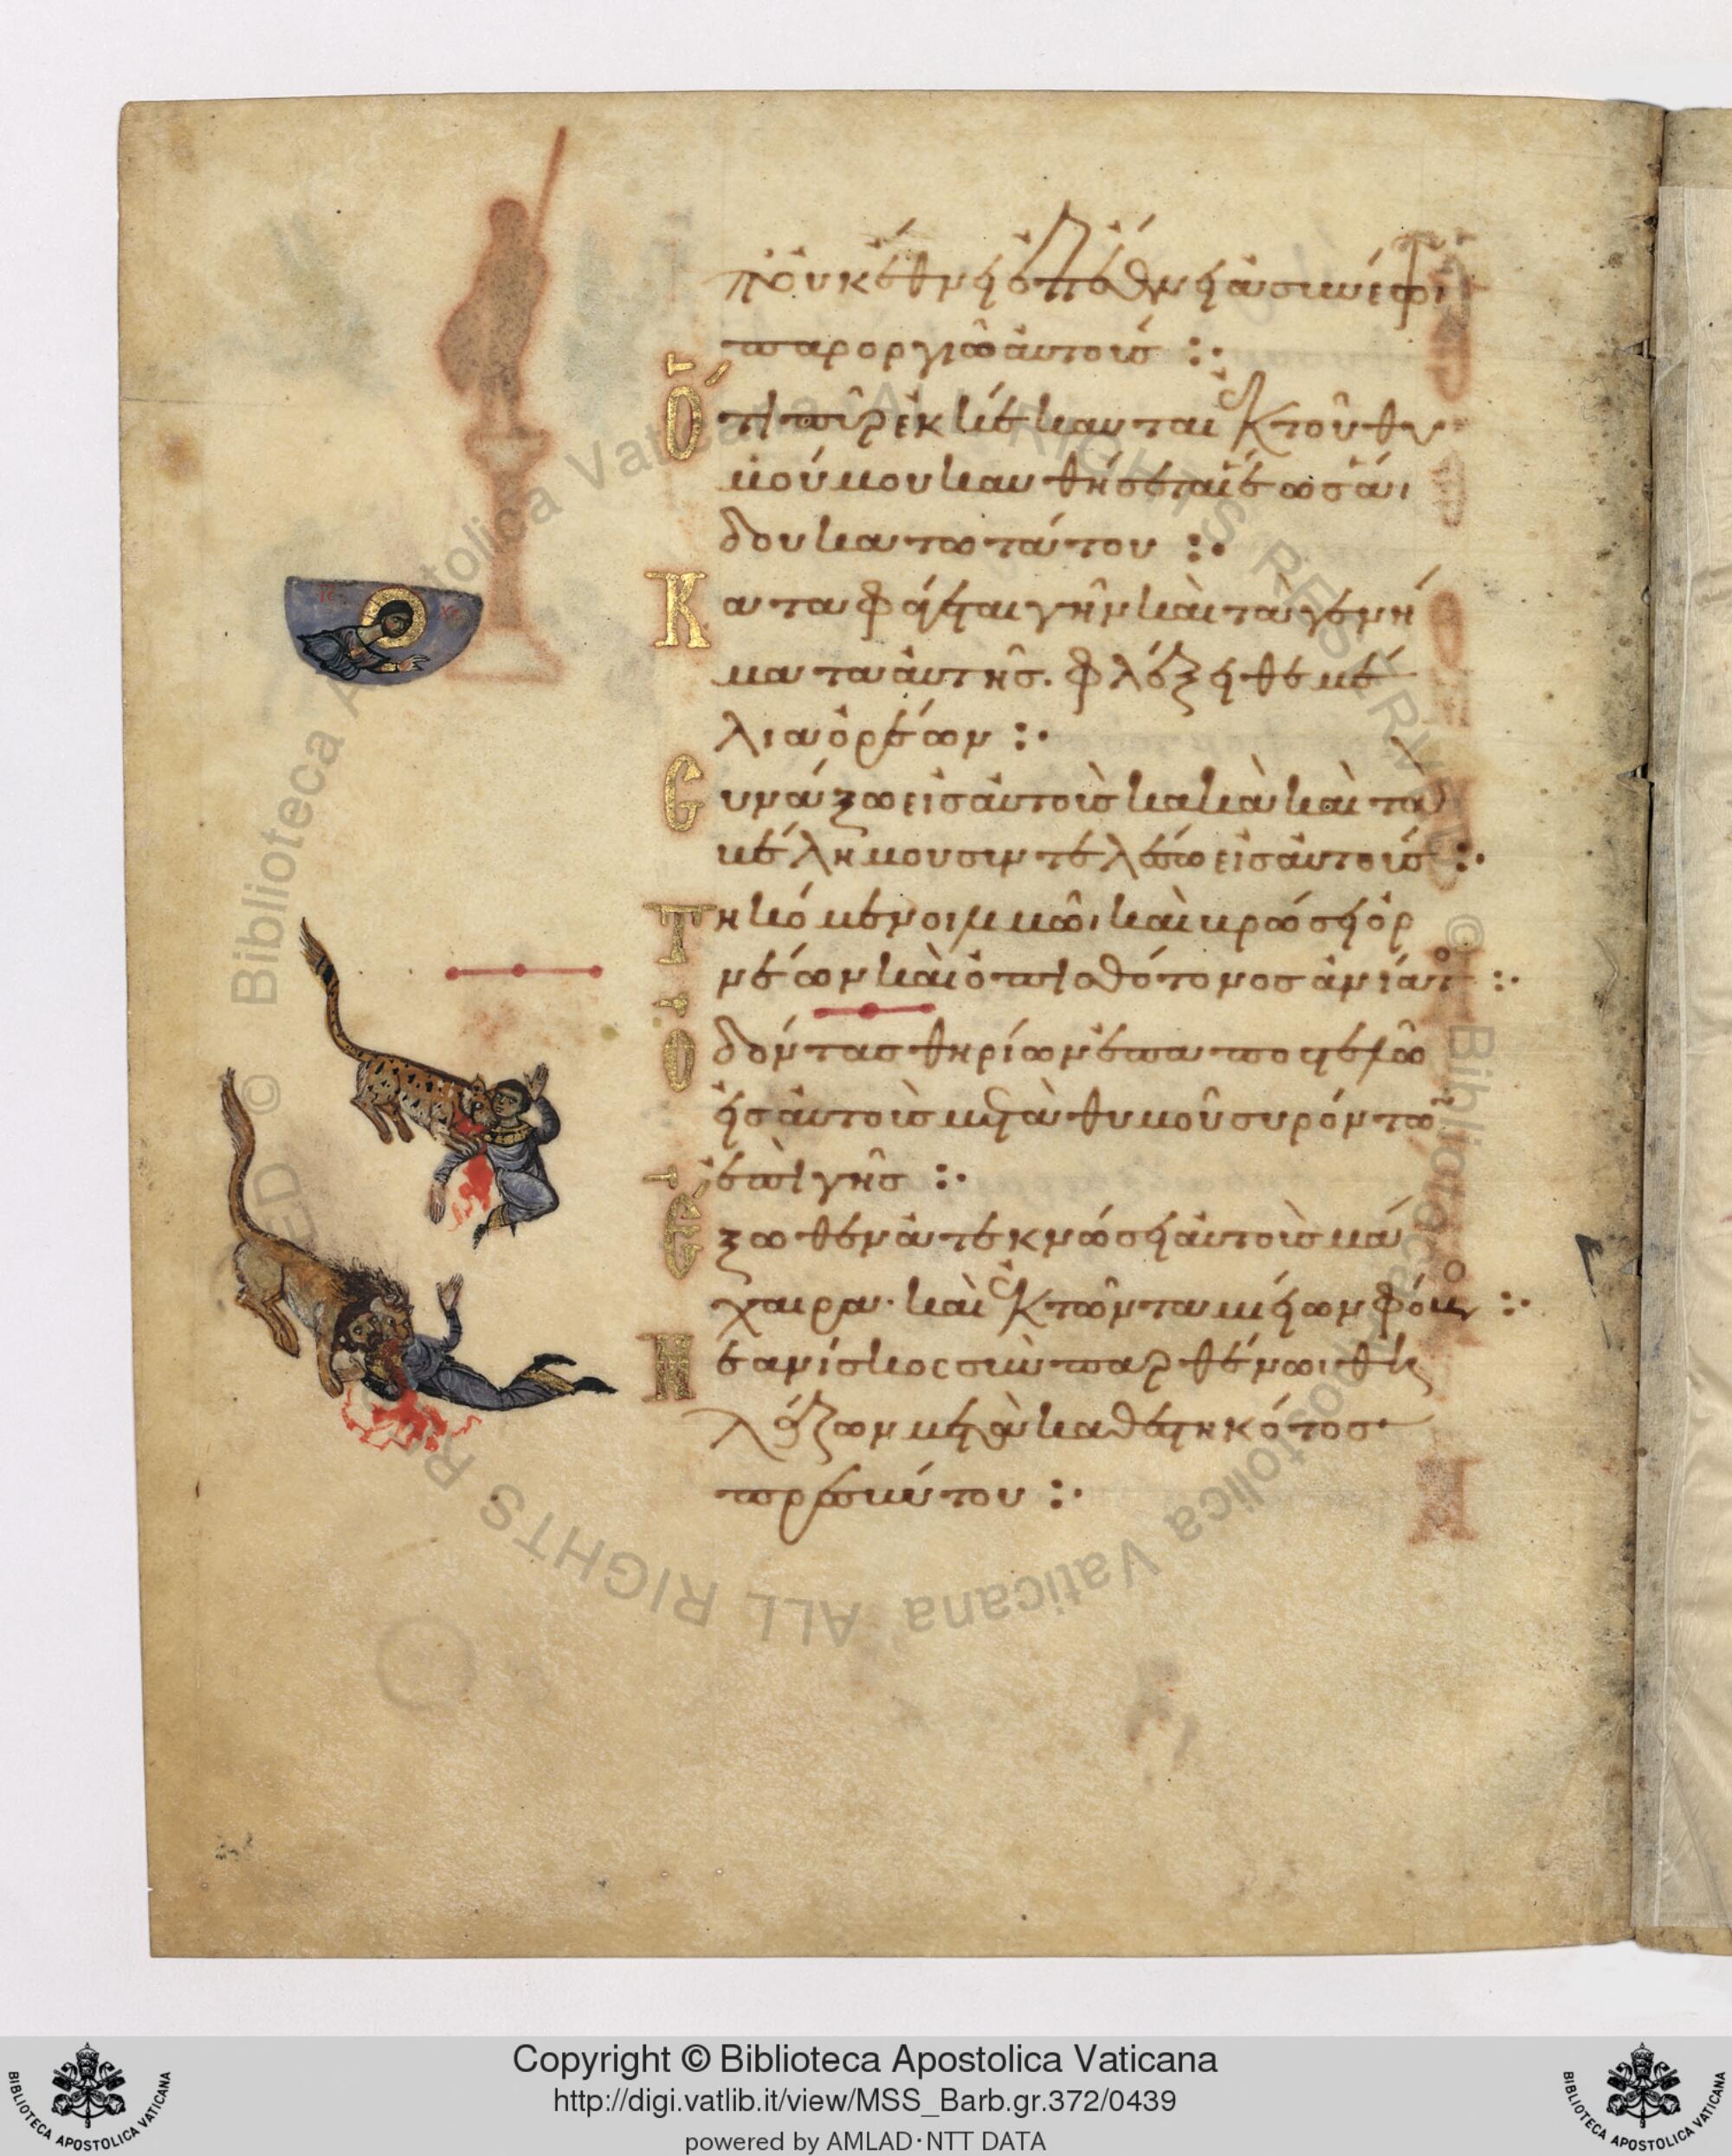 π' οὐκ ἔθνει ἐπὶ ἔθνει ἀσυνέτωι
παροργιῶ αὐτούς :·
Ὅτι πῦρ ἐκκέκαυται ἐκ τοῦ θυ
μοῦ μου καυθήσεται ἕως ἅι
δου κατωτάτου :·
Καταφάγεται γῆν καὶ τὰ γενή
ματα αὐτῆς. φλέξει θεμέ
λια ὀρέων :·
Συνάξω εἰς αὐτοὺς κακὰ καὶ τὰ
βέλη μου συντελέσω εἰς αὐτούς :·
Τηκόμενοι λιμῶι καὶ βρώσει ὀρ
νέων καὶ ὀπισθότονος ἀνίατος :·
Ὀδόντας θηρίων ἐπαποστελῶ
εἰς αὐτοὺς μετὰ θυμοῦ συρόντων
ἐπὶ γῆς :·
Ἔξωθεν ἀτεκνώσει αὐτοὺς μά
χαιρα· καὶ ἐκ τῶν ταμιείων φόβος :·
Νεανίσκος σὺν παρθένωι θη
λάζων μετὰ καθεστηκότος
πρεσβύτου :·
Copyright © Biblioteca Apostolica Vaticana
http://digi.vatlib.it/view/MSS_Barb.gr.372/0439
powered by AMLAD·NTT DATA
BIBLIOTECA APOSTOLICA VATICANA
BIBLIOTECA APOSTOLICA VATICANA
© Biblioteca Apostolica Vaticana ALL RIGHTS RESERVED © Biblioteca Apostolica Vaticana ALL RIGHTS RESERVED